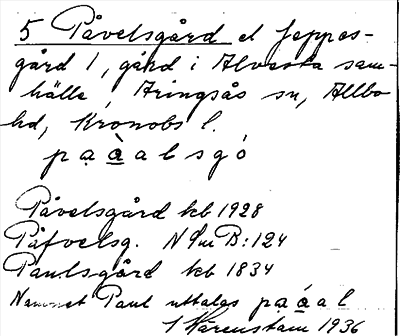 5 Påvelsgård el Jeppes-
gård 1, gård i Alvesta sam-
hälle, Aringsås sn, Allbo
hd, Kronobs l.
pạạ̀alsgó
Påvelsgård kb 1928
Påfvelsg. N 9m B:124
Paulsgård kb 1834
Namnet Paul uttalas pạạ́al
/ Härenstam 1936